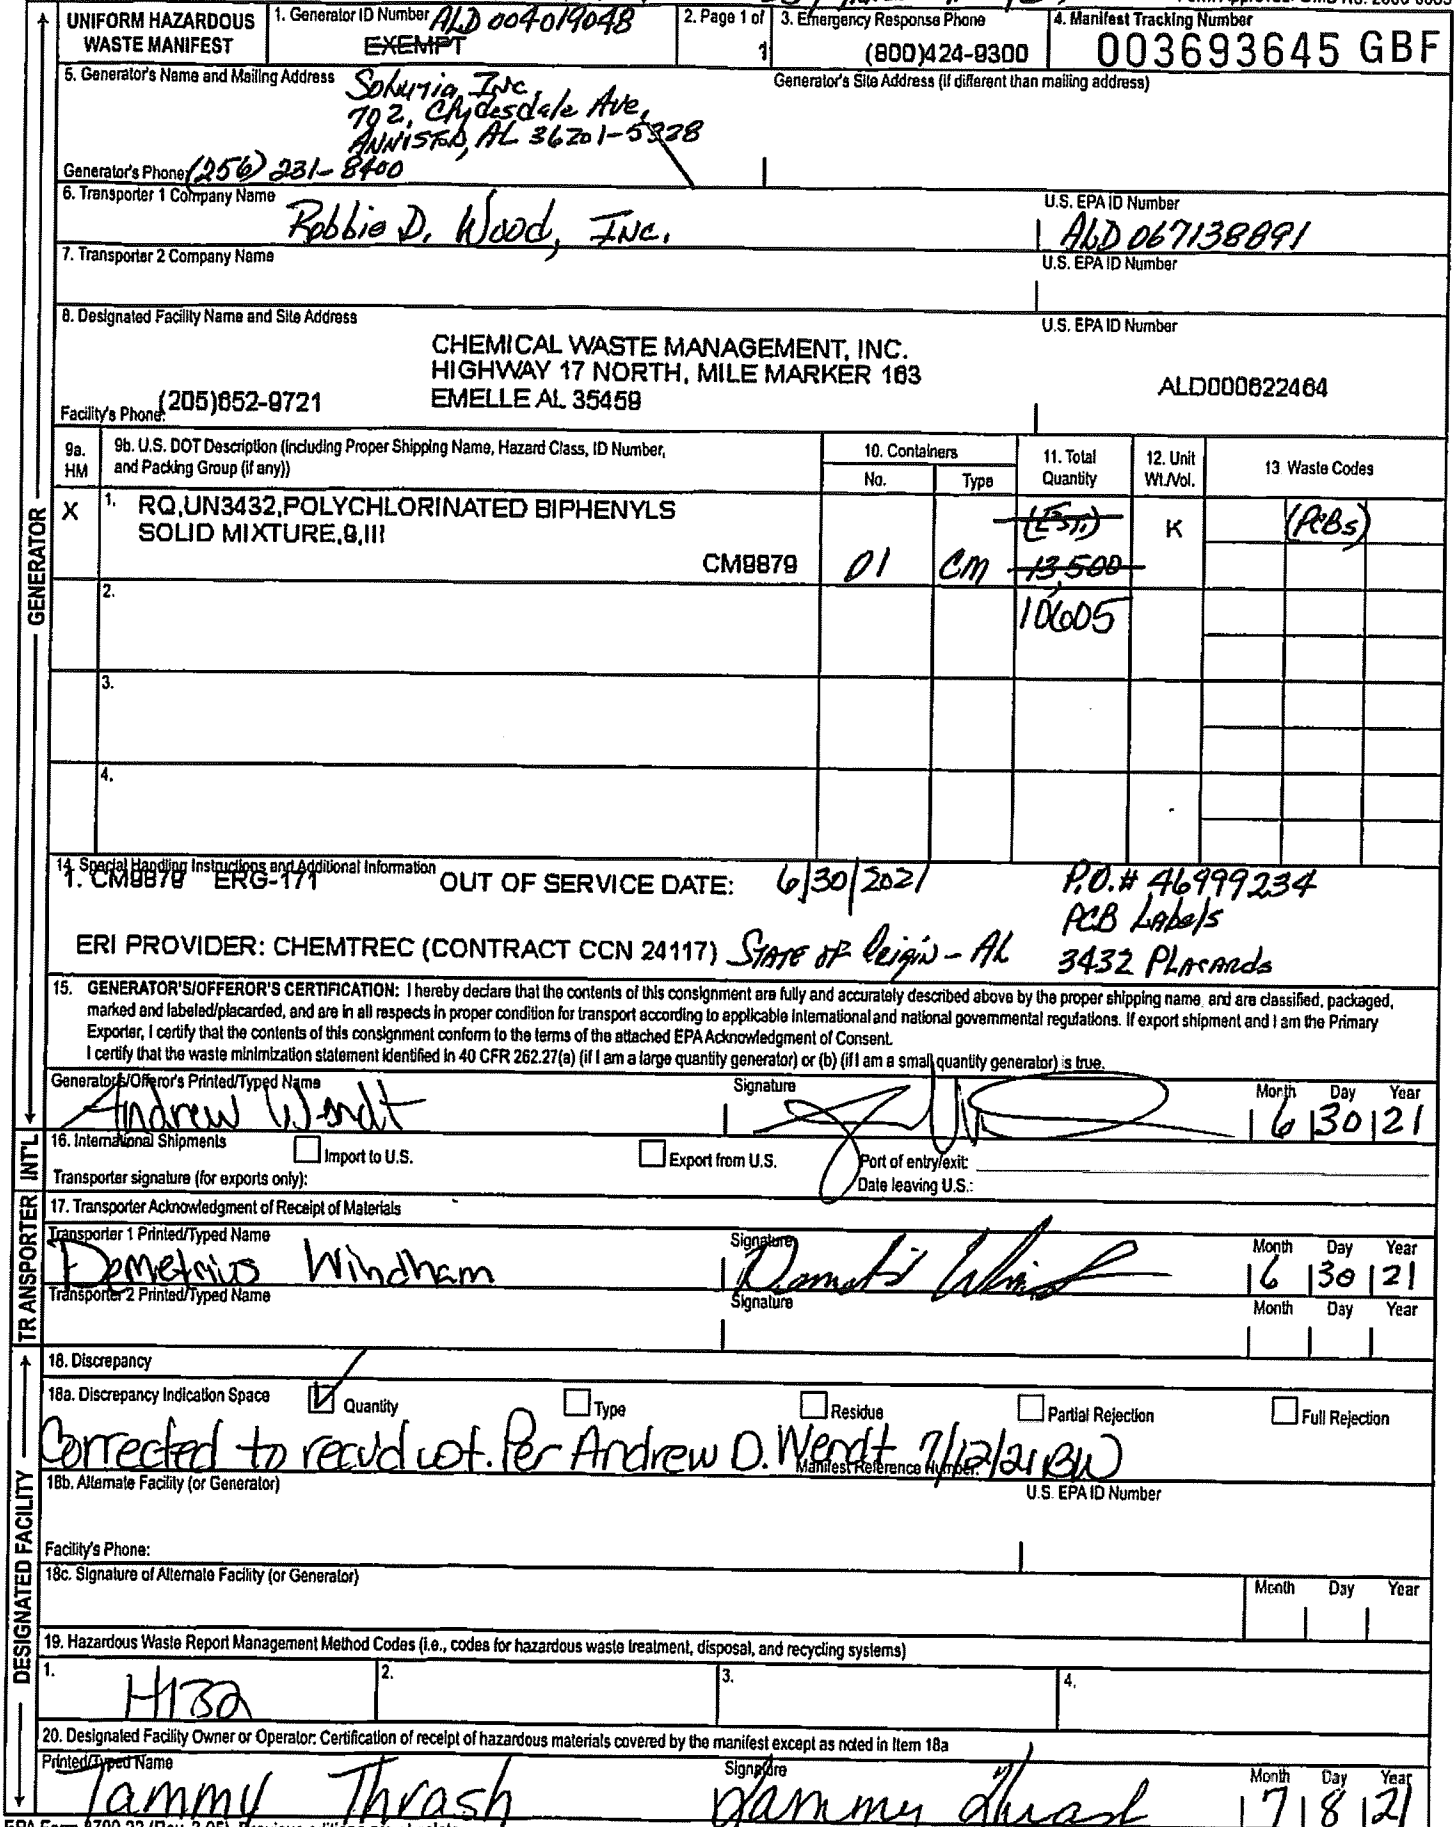 UNIFORM HAZARDOUS WASTE MANIFEST
1. Generator ID Number ALD 004019048
EXEMPT
2. Page 1 of 1
3. Emergency Response Phone
(800)424-9300
4. Manifest Tracking Number
003693645 GBF
5. Generator's Name and Mailing Address
Solutia, Inc.
702, Clydesdale Ave,
ANNISTON, AL 36201-5328
Generator's Site Address (if different than mailing address)
Generator's Phone: (256) 231-8400
6. Transporter 1 Company Name
Robbie D. Wood, Inc.
U.S. EPA ID Number
ALD 067138891
7. Transporter 2 Company Name
U.S. EPA ID Number
8. Designated Facility Name and Site Address
U.S. EPA ID Number
CHEMICAL WASTE MANAGEMENT, INC.
HIGHWAY 17 NORTH, MILE MARKER 163
EMELLE AL 35459
ALD000622464
Facility's Phone: (205)652-9721
9a. HM
9b. U.S. DOT Description (including Proper Shipping Name, Hazard Class, ID Number, and Packing Group (if any))
10. Containers
No.
Type
11. Total Quantity
12. Unit Wt./Vol.
13 Waste Codes
X
1. RQ,UN3432,POLYCHLORINATED BIPHENYLS
SOLID MIXTURE,9,III
CM9879
01
CM
(EST.)
13,500
10605
K
(PCBs)
2.
3.
4.
14. Special Handling Instructions and Additional Information
1. CM9879 ERG-171 OUT OF SERVICE DATE: 6/30/2021
P.O.# 46999234
PCB Labels
3432 Placards
ERI PROVIDER: CHEMTREC (CONTRACT CCN 24117) State of Origin - AL
15. GENERATOR'S/OFFEROR'S CERTIFICATION: I hereby declare that the contents of this consignment are fully and accurately described above by the proper shipping name, and are classified, packaged,
marked and labeled/placarded, and are in all respects in proper condition for transport according to applicable international and national governmental regulations. If export shipment and I am the Primary
Exporter, I certify that the contents of this consignment conform to the terms of the attached EPA Acknowledgment of Consent.
I certify that the waste minimization statement identified in 40 CFR 262.27(a) (if I am a large quantity generator) or (b) (if I am a small quantity generator) is true.
Generator's/Offeror's Printed/Typed Name
Andrew Wendt
Signature
Month Day Year
6 30 21
16. International Shipments
Import to U.S.
Export from U.S.
Port of entry/exit:
Transporter signature (for exports only):
Date leaving U.S.:
17. Transporter Acknowledgment of Receipt of Materials
Transporter 1 Printed/Typed Name
Demetrius Windham
Signature
Month Day Year
6 30 21
Transporter 2 Printed/Typed Name
Signature
Month Day Year
18. Discrepancy
18a. Discrepancy Indication Space
Quantity
Type
Residue
Partial Rejection
Full Rejection
Corrected to recvd wt. Per Andrew D. Wendt 7/12/21 BW
Manifest Reference Number:
18b. Alternate Facility (or Generator)
U.S. EPA ID Number
Facility's Phone:
18c. Signature of Alternate Facility (or Generator)
Month Day Year
19. Hazardous Waste Report Management Method Codes (i.e., codes for hazardous waste treatment, disposal, and recycling systems)
1. H132
2.
3.
4.
20. Designated Facility Owner or Operator: Certification of receipt of hazardous materials covered by the manifest except as noted in Item 18a
Printed/Typed Name
Tammy Thrash
Signature
Tammy Thrash
Month Day Year
7 8 21
GENERATOR
INT'L
TRANSPORTER
DESIGNATED FACILITY